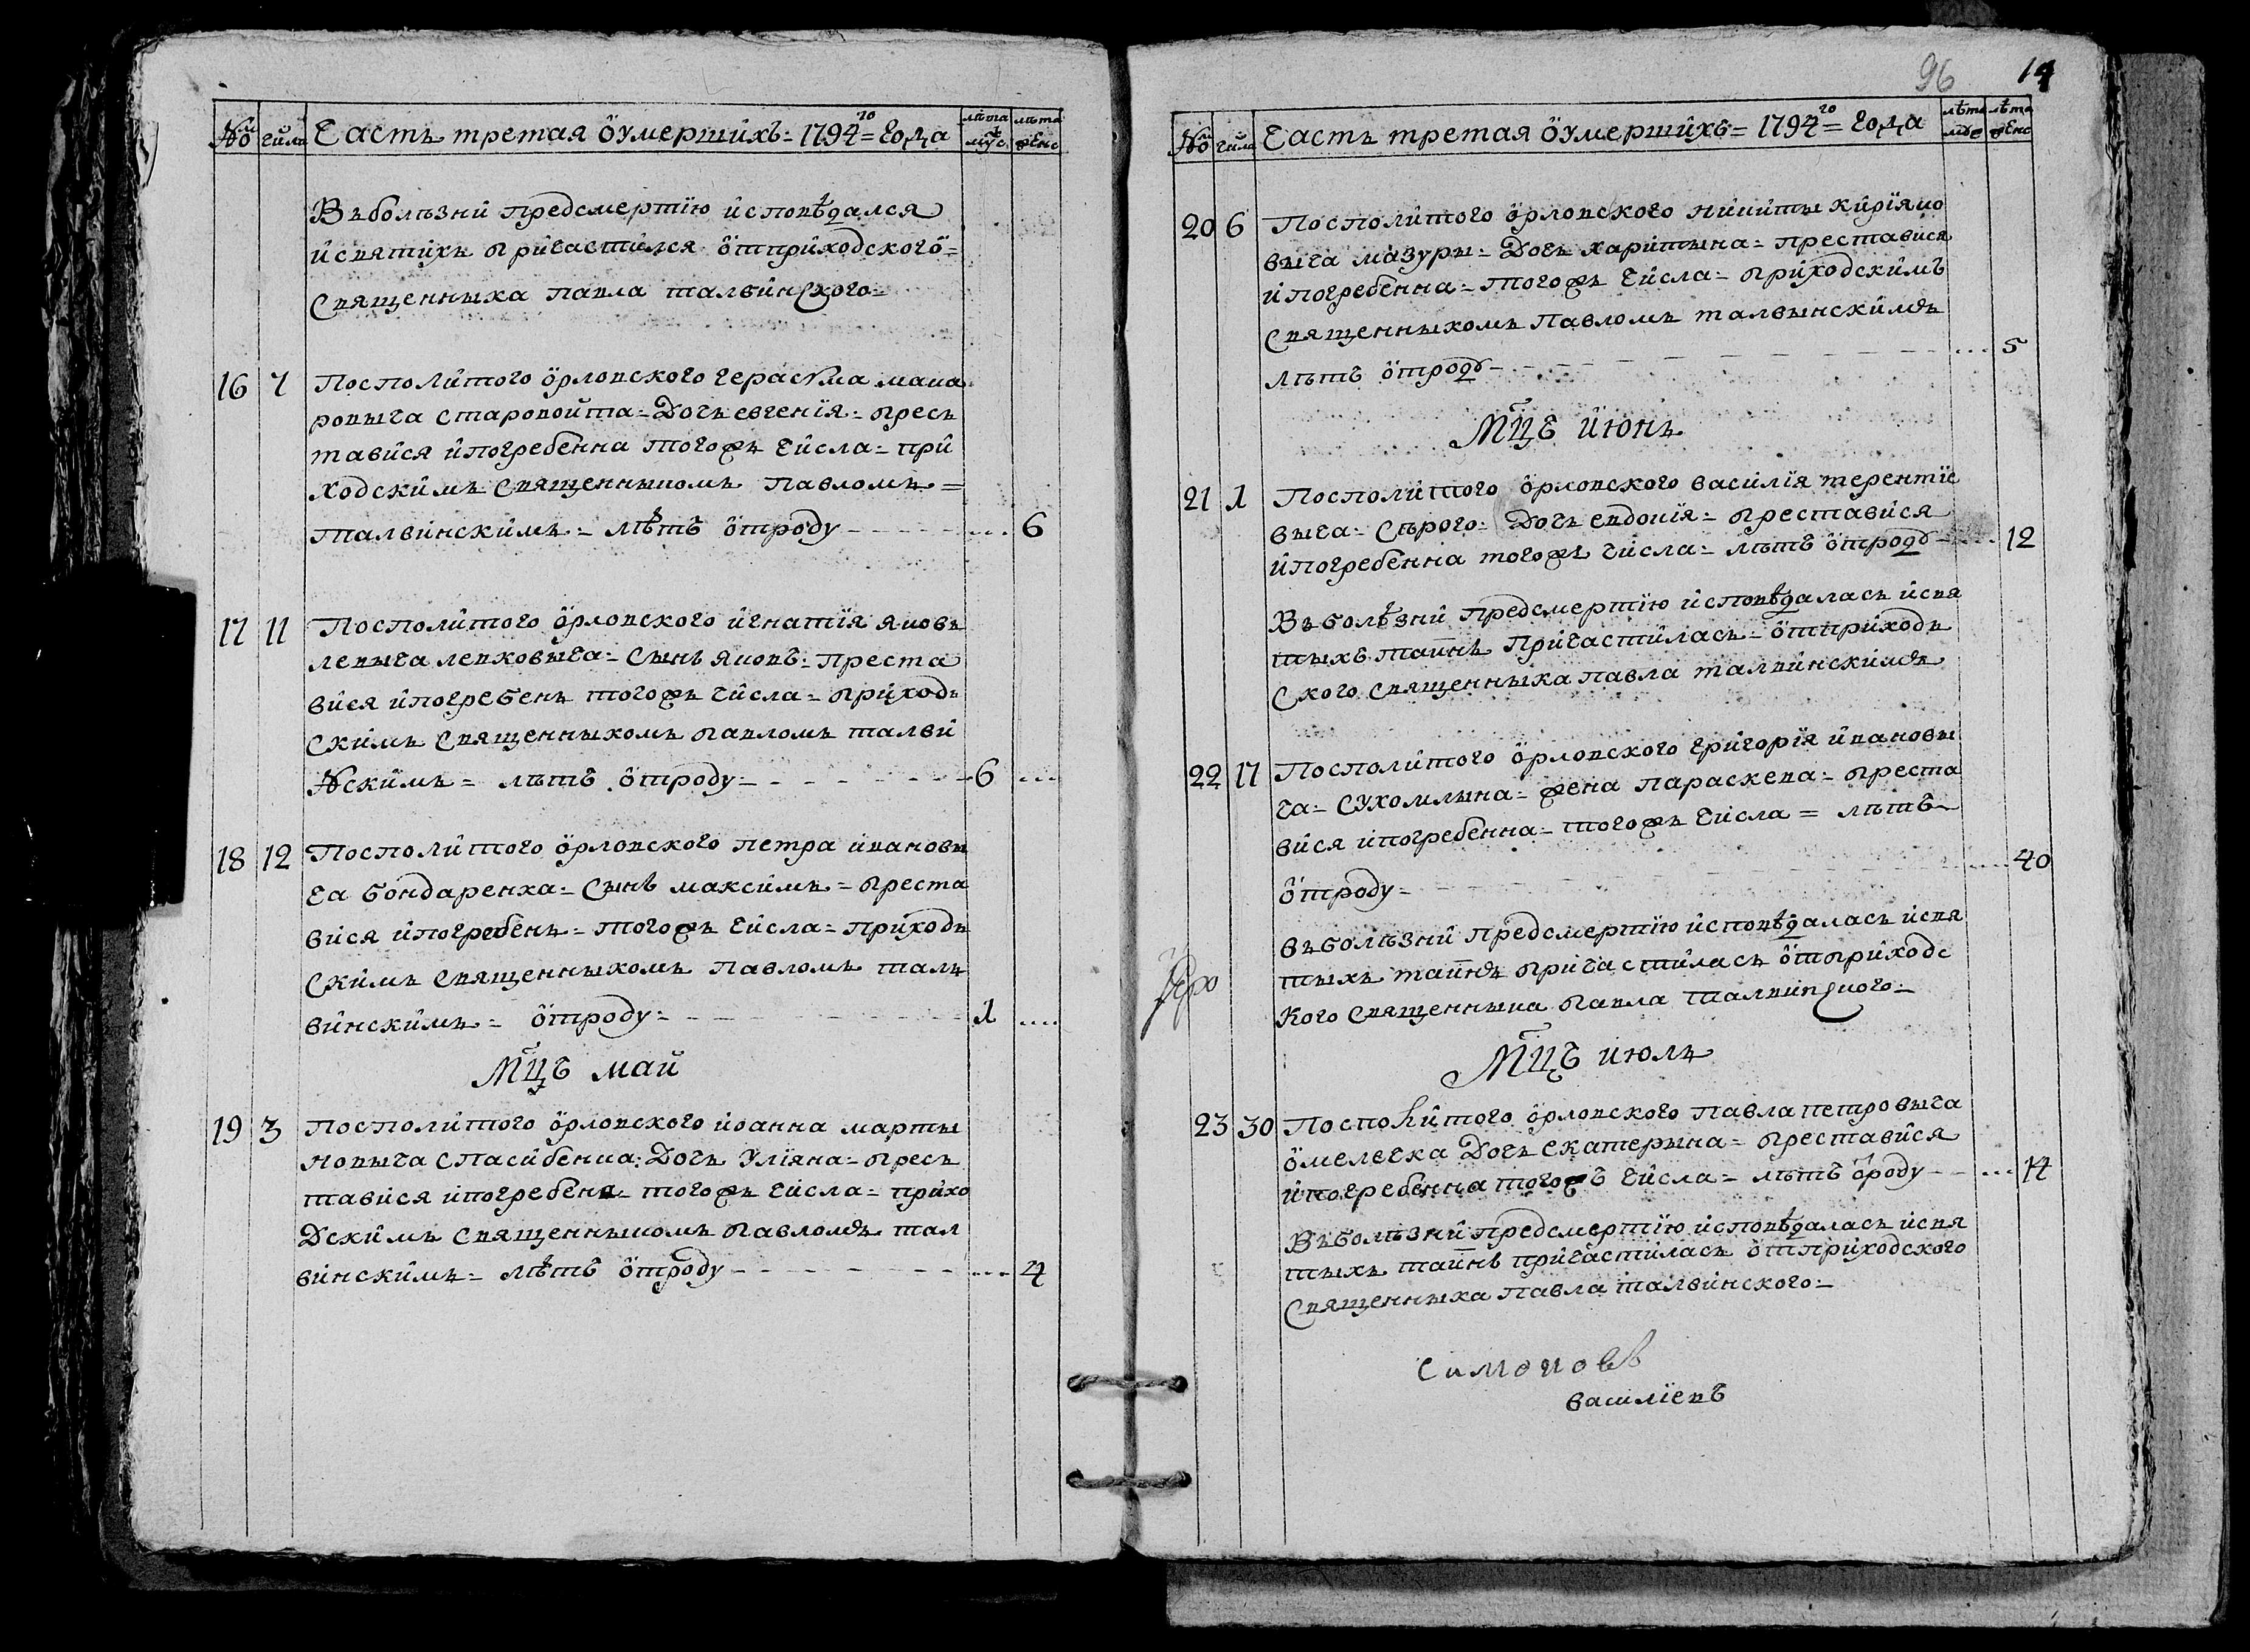 № числ Часть третая оумершихъ = 1794 го = года лѣта мус лѣта женс
Въ болѣзни предсмертїю исповѣдался
и святихъ причастился отприходского =
священныка павла талвинского =
16 7 Посполитого орловского герасима мака
ровыча старовойта = дочь евгенїя = пресь
тавися и погребенна тогожъ числа = при
ходскимъ священныкомъ павломъ =
талвинскимъ = лѣтъ отроду ... 6
17 11 Посполитого орловского игнатїя яковъ
левыча левковыча = сынъ яковъ = преста
вися и погребенъ тогожъ числа = приходь
скимъ священныкомъ павломъ талви
нскимъ = лѣтъ отроду = 6 ...
18 12 Посполитого орловского петра ивановы
ча бондаренка = сынъ максимъ = преста
вися и погребенъ = тогожъ числа = приходь
скимъ священныкомъ павломъ таль
винскимъ = отроду = 1 ....
мцъ май
19 3 Посполитого орловского иоанна марты
новыча спасибенка = дочь улїяна = пресь
тавися и погребена = тогожъ числа = прихо
дскимъ священныкомъ павломъ тал
винскимъ = лѣтъ отроду ... 4
96 14
№ числ Часть третая оумершихъ = 1794 го = года лѣта муж лѣта женс
20 6 Посполитого орловского никиты кирїяко
выча мазуры = дочь харитына = преставися
и погребенна = тогожъ числа = приходскимъ
священныкомъ павломъ талвынскимъ
лѣтъ отроду ... 5
мцъ июнь
21 1 Посполитого орловского василїя терентїе
выча = сѣрого = дочь евдокїя = преставися
и погребенна тогожъ числа = лѣтъ отроду ... 12
Въ болѣзни предсмертїю исповѣдалась и свя
тыхъ таинъ причастилась = отприходь
ского священныка павла талвинскимъ
22 17 Посполитого орловского григорїя ивановы
ча = сухомлына = жена параскева = преста
вися и погребенна = тогожъ числа = лѣтъ
отроду = .... 40
въ болѣзни предсмертїю исповѣдалась и свя
тыхъ таинъ причастилась отприходс
кого священныка павла талвинского =
мцъ июль
23 30 Посполитого орловского павла петровыча
омелечка дочь екатерына = преставися
и погребенна тогожъ числа = лѣтъ ороду ... 14
Въ болѣзни предсмертїю исповѣдалась и свя
тыхъ таинъ причастилась отприходского
священныка павла талвинского =
симоновъ
василїевъ